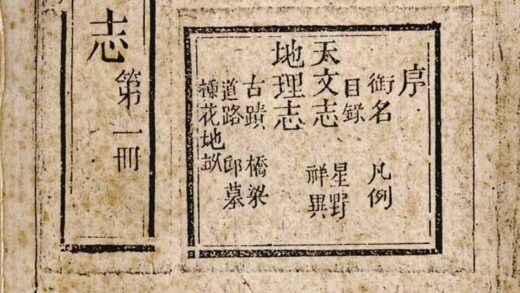 序
衘名 凡例
目錄
天文志 星野
祥異
地理志
古蹟 橋梁
道路 邱墓
種花地畝
志 第一冊